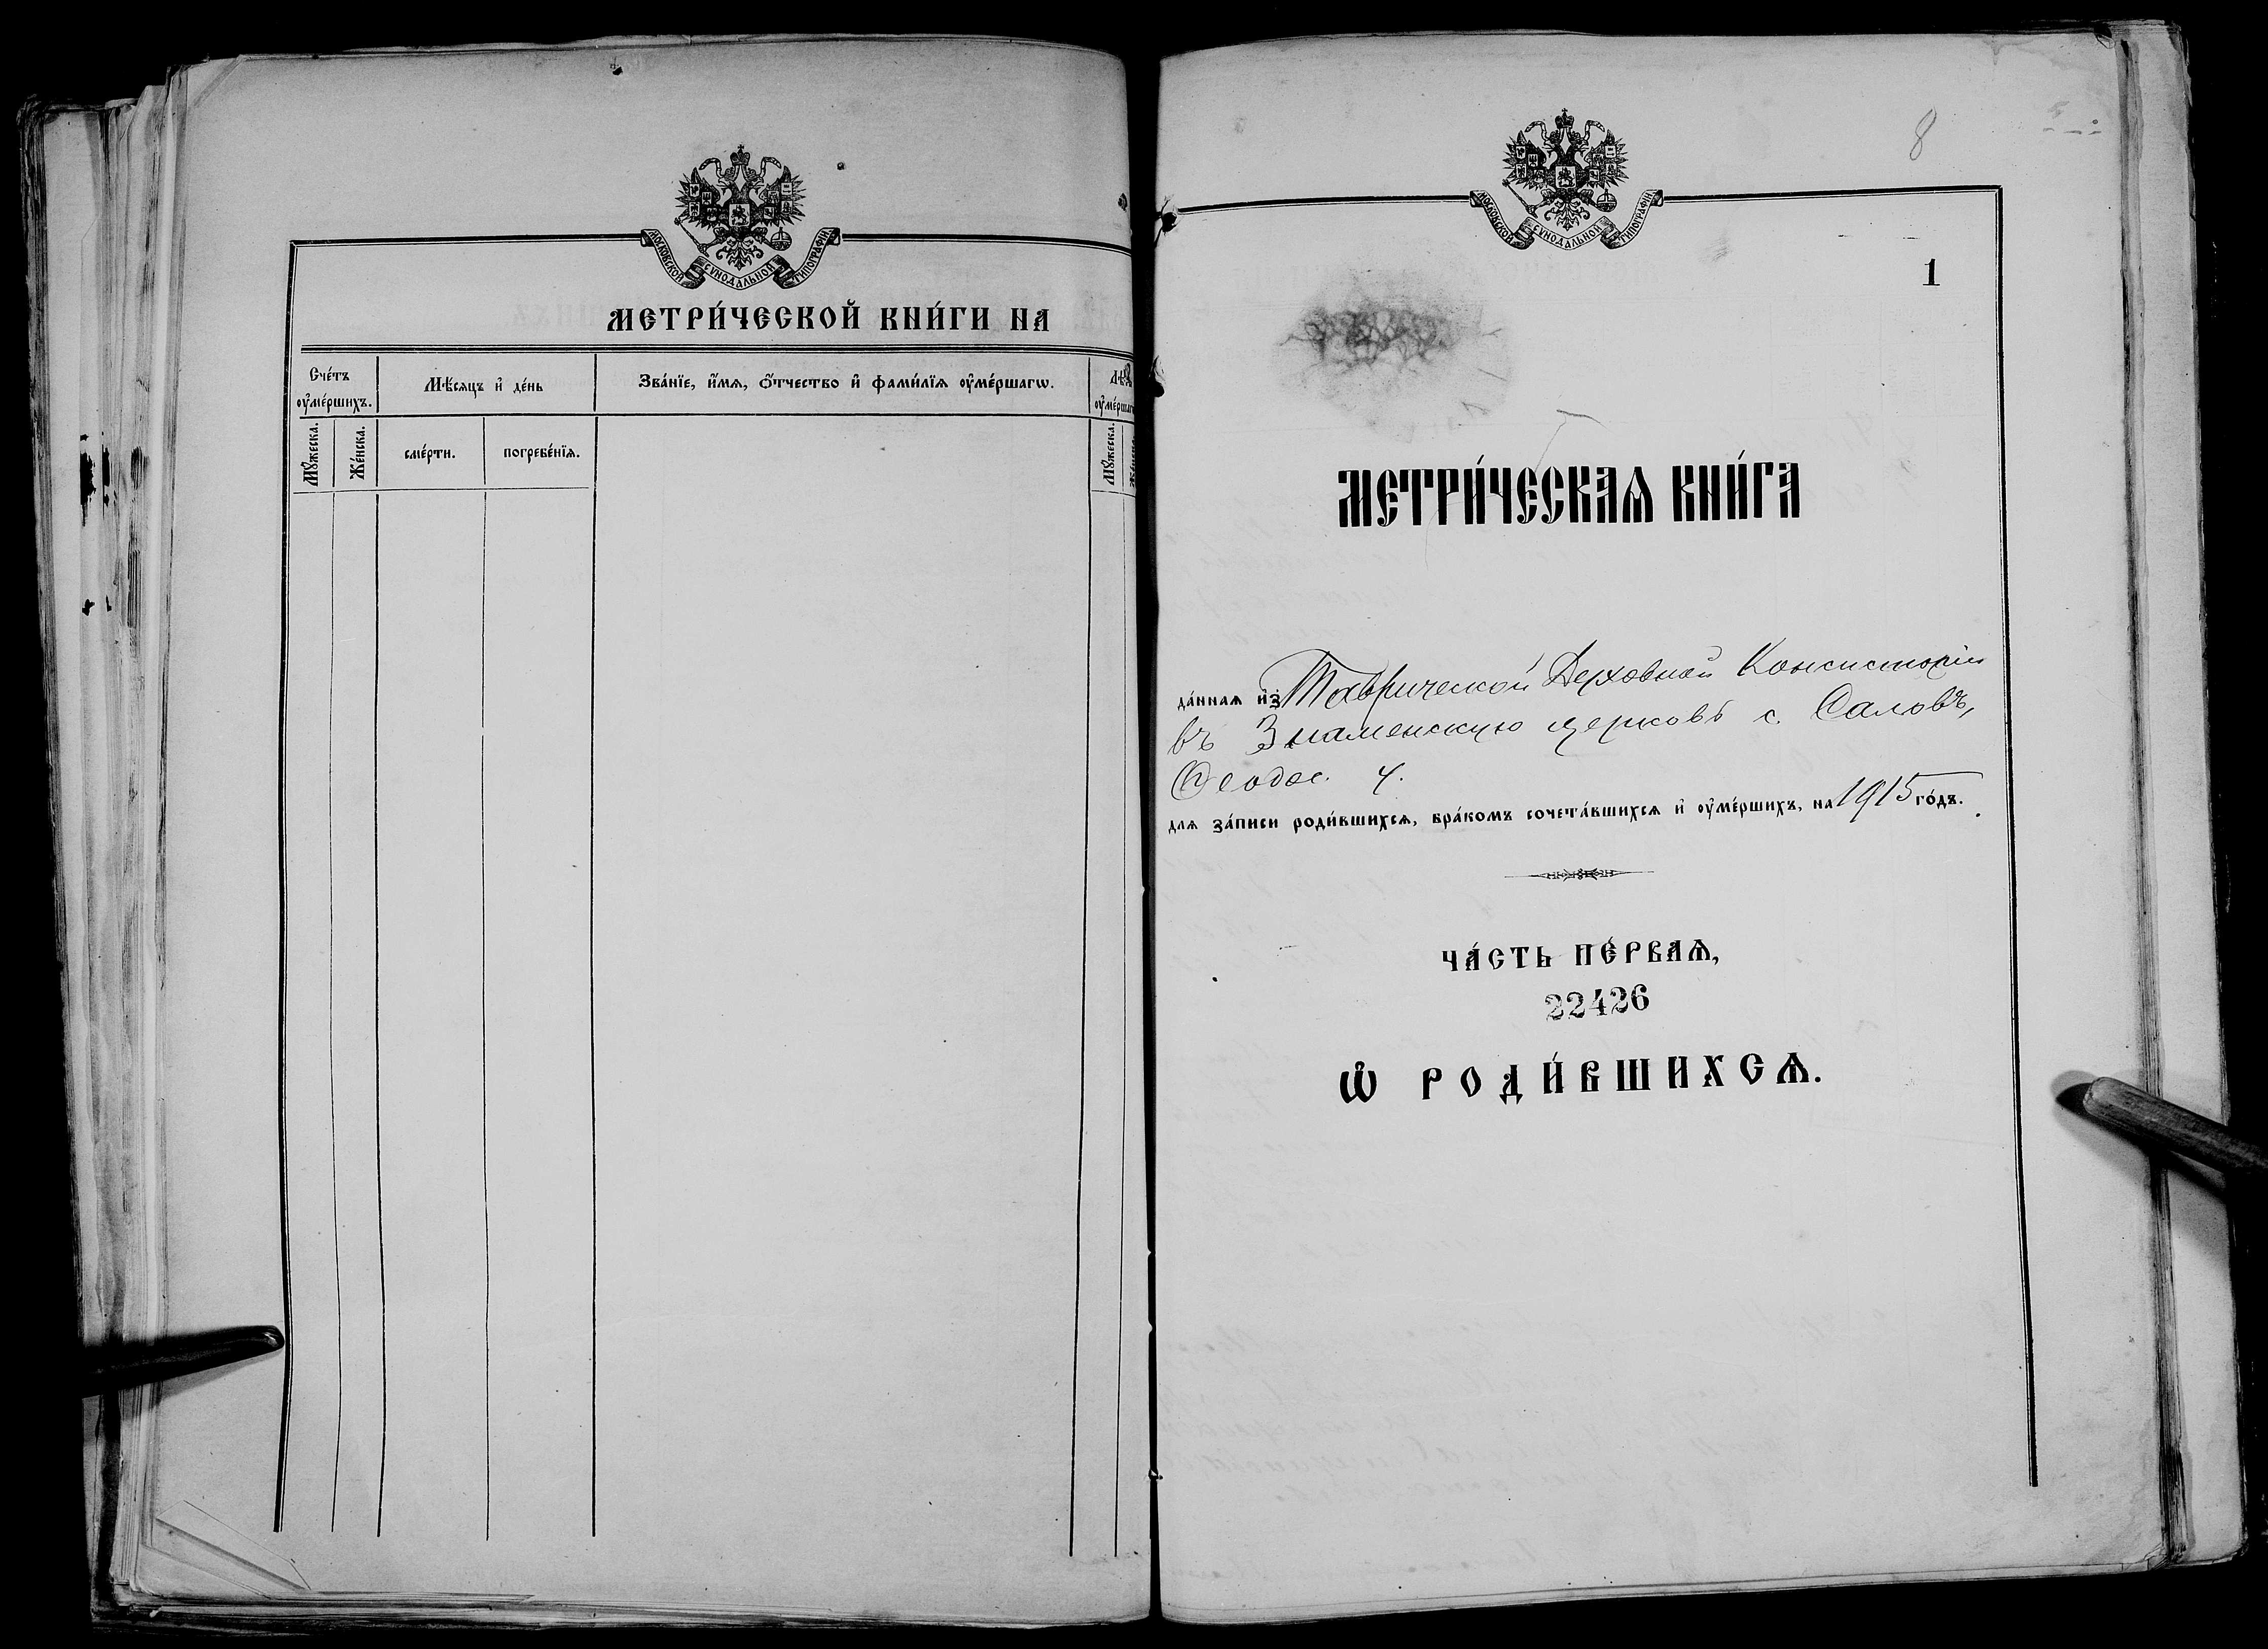 МОСКОВСКОЙ СѴНОДАЛЬНОЙ ТИПОГРАФІИ
МЕТРИ́ЧЕСКОЙ КНИ́ГИ НА
Сче́тъ оу҆ме́ршихъ.
Мѣ́сяцъ и҆ де́нь
Зва́нїе, и҆́мѧ, ѻ҆́тчество и҆ фами́лїѧ оу҆ме́ршагѡ.
оу҆ме́ршагѡ
Мꙋ́жеска.
Же́нска.
сме́рти.
погребе́нїѧ.
Мꙋ́жеска.
8
МОСКОВСКОЙ СѴНОДАЛЬНОЙ ТИПОГРАФІИ
1
МЕТРИ́ЧЕСКАѦ КНИ́ГА
да́ннаѧ и҆з̾ Таврической Духовной Консисторіи
въ Знаменскую церковь с. Саловъ,
Ѳеодос. у.
длѧ за́писи роди́вшихсѧ, бра́комъ сочета́вшихсѧ и҆ оу҆ме́ршихъ, на 1915 го́дъ.
ЧА́СТЬ ПЕ́РВАѦ,
22426
Ѽ РОДИ́ВШИХСѦ.